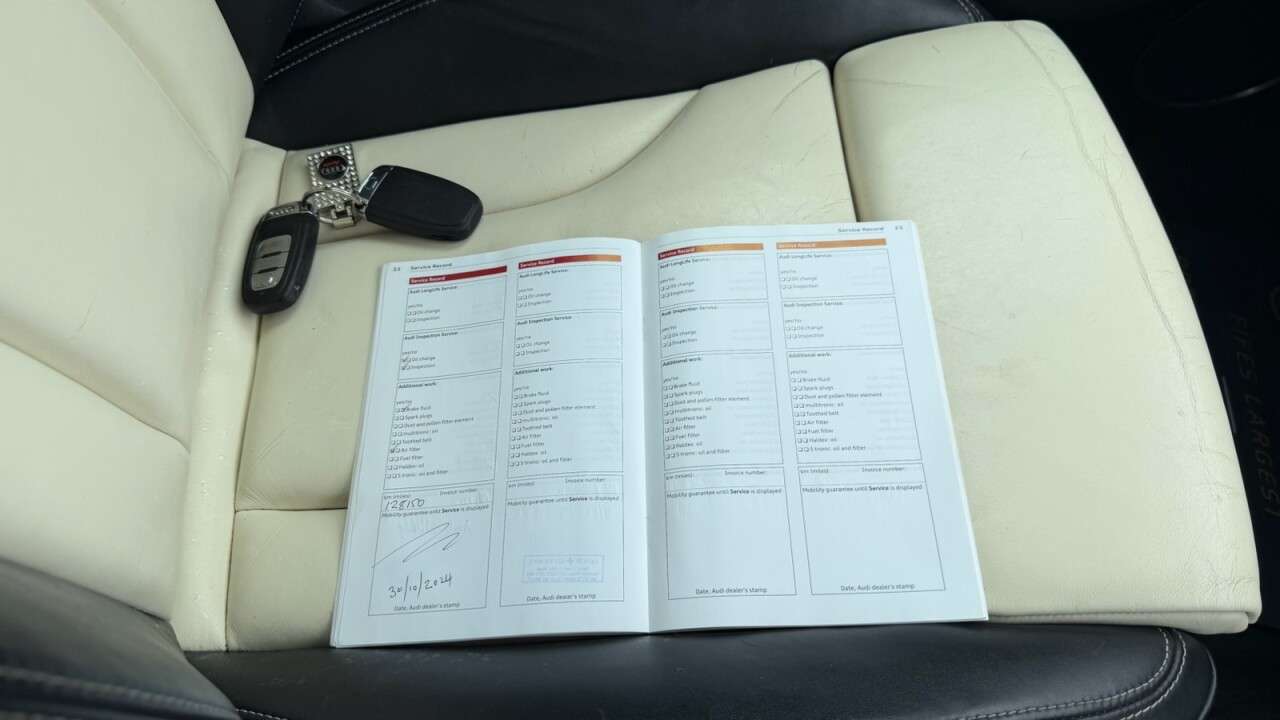 22 Service Record
Service Record
Audi LongLife Service:
yes/no
Oil change
Inspection
Audi Inspection Service:
yes/no
Oil change
Inspection
Additional work:
yes/no
Brake fluid
Spark plugs
Dust and pollen filter element
multitronic: oil
Toothed belt
Air filter
Fuel filter
Haldex: oil
S tronic: oil and filter
km (miles): Invoice number:
128150
Mobility guarantee until Service is displayed
30/10/2024
Date, Audi dealer's stamp
Service Record
Audi LongLife Service:
yes/no
Oil change
Inspection
Audi Inspection Service:
yes/no
Oil change
Inspection
Additional work:
yes/no
Brake fluid
Spark plugs
Dust and pollen filter element
multitronic: oil
Toothed belt
Air filter
Fuel filter
Haldex: oil
S tronic: oil and filter
km (miles): Invoice number:
Mobility guarantee until Service is displayed
Date, Audi dealer's stamp
Service Record 23
Service Record
Audi LongLife Service:
yes/no
Oil change
Inspection
Audi Inspection Service:
yes/no
Oil change
Inspection
Additional work:
yes/no
Brake fluid
Spark plugs
Dust and pollen filter element
multitronic: oil
Toothed belt
Air filter
Fuel filter
Haldex: oil
S tronic: oil and filter
km (miles): Invoice number:
Mobility guarantee until Service is displayed
Date, Audi dealer's stamp
Service Record
Audi LongLife Service:
yes/no
Oil change
Inspection
Audi Inspection Service:
yes/no
Oil change
Inspection
Additional work:
yes/no
Brake fluid
Spark plugs
Dust and pollen filter element
multitronic: oil
Toothed belt
Air filter
Fuel filter
Haldex: oil
S tronic: oil and filter
km (miles): Invoice number:
Mobility guarantee until Service is displayed
Date, Audi dealer's stamp